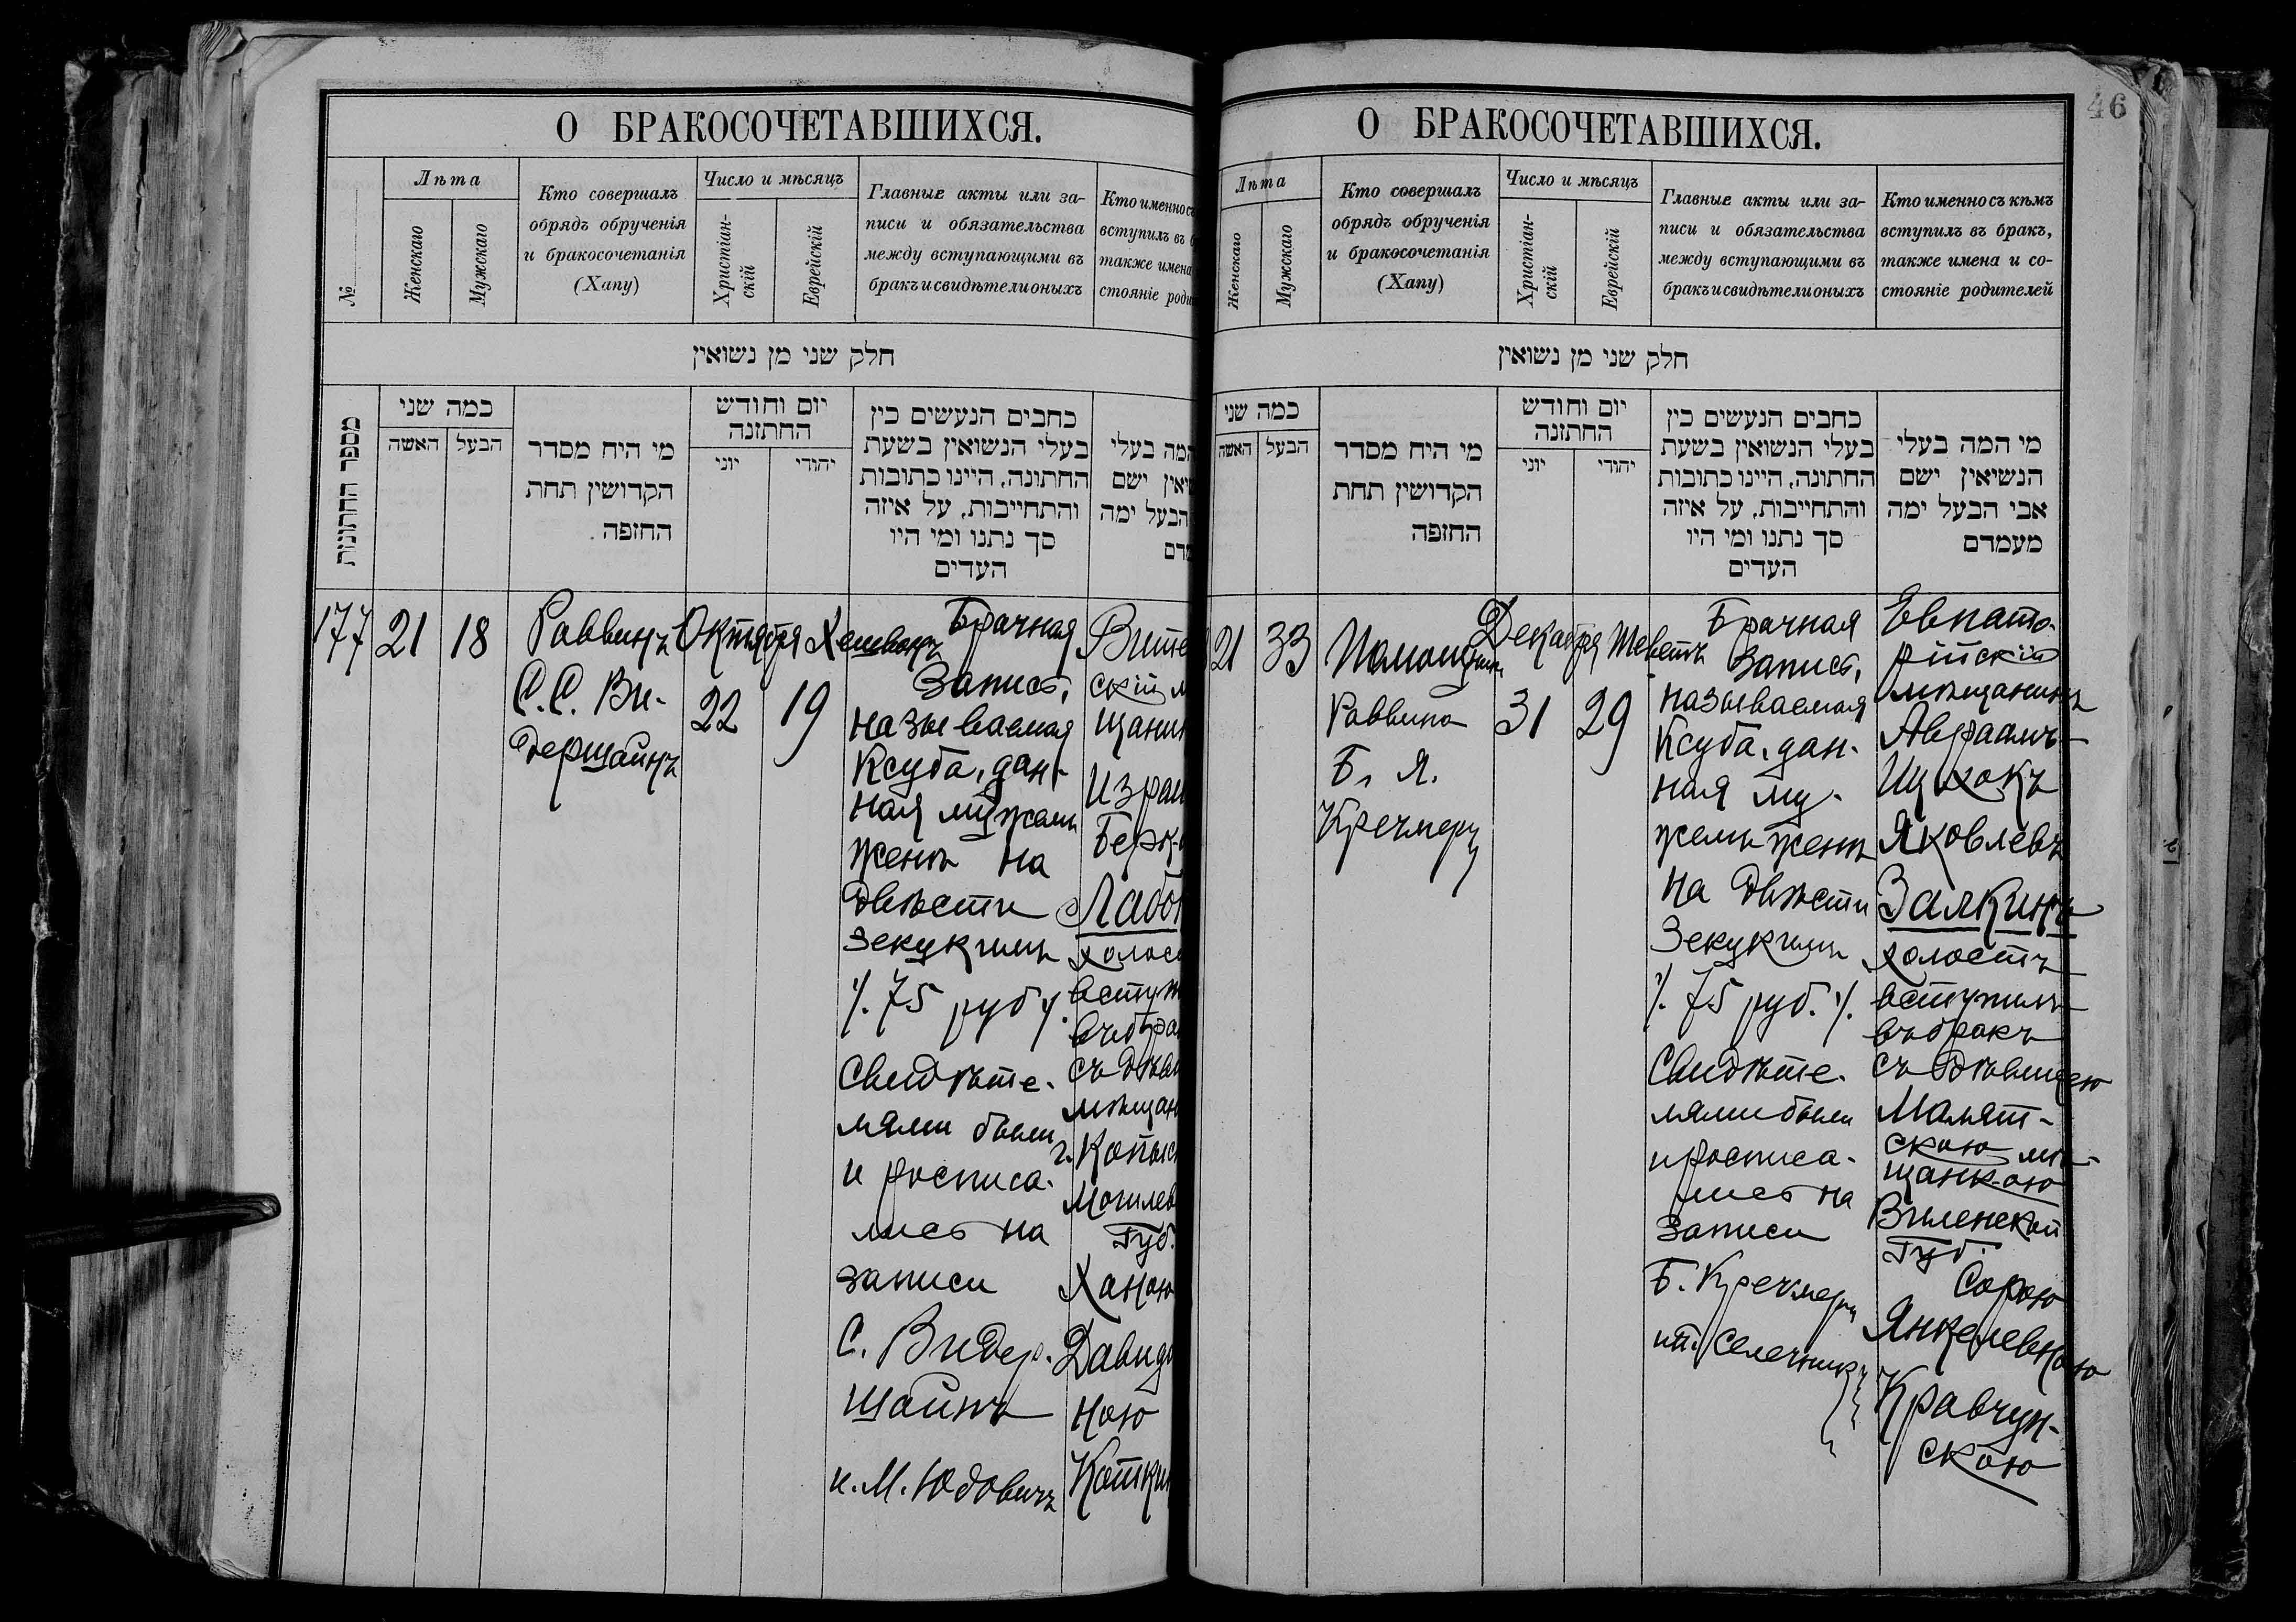 О БРАКОСОЧЕТАВШИХСЯ.
№
Лѣта
Женскаго
Мужскаго
Кто совершалъ
обрядъ обрученія
и бракосочетанія
(Хапу)
Число и мѣсяцъ
Христіан-
скій
Еврейскій
Главные акты или за-
писи и обязательства
между вступающими въ
бракъ и свидѣтели оныхъ
Кто именно съ
вступилъ въ б
также имена
стояніе роди
חלק שני מן נשואין
מספר החתונות
כמה שני
האשה
הבעל
מי היח מסדר
הקדושין תחת
החופה .
יום וחודש
החתונה
יוני
יהודי
כתבים הנעשים בין
בעלי הנשואין בשעת
החתונה, היינו כתובות
והתחייבות, על איזה
סך נתנו ומי היו
העדים
המה בעלי
יאין ישם
הבעל ימה
מדם
177
21
18
Раввинъ
С. С. Ви-
дершайнъ
Октября
22
Хешванъ
19
Брачная
Запись,
называемая
Ксуба, дан-
ная мужемъ
женѣ на
двѣсти
зекукимъ
/. 75 руб /.
Свидѣте-
лями были
и росписа-
лись на
записи
С. Видер-
шайнъ
и. М. Юдовичъ
Вите
скій м
щанин
Изра
Берк
Лабо
холос
вступ
въ бра
съ дѣви
мѣщан
г. Копыс
Могилев
Губ.
Ханою
Давидо
ною
Коткин
46
О БРАКОСОЧЕТАВШИХСЯ.
Лѣта
Женскаго
Мужскаго
Кто совершалъ
обрядъ обрученія
и бракосочетанія
(Хапу)
Число и мѣсяцъ
Христіан-
скій
Еврейскій
Главные акты или за-
писи и обязательства
между вступающими въ
бракъ и свидѣтели оныхъ
Кто именно съ кѣмъ
вступилъ въ бракъ,
также имена и со-
стояніе родителей
חלק שני מן נשואין
כמה שני
האשה
הבעל
מי היח מסדר
הקדושין תחת
החופה
יום וחודש
החתונה
יוני
יהודי
כתבים הנעשים בין
בעלי הנשואין בשעת
החתונה, היינו כתובות
והתחייבות, על איזה
סך נתנו ומי היו
העדים
מי המה בעלי
הנשיאין ישם
אבי הבעל ימה
מעמדם
21
33
Помощникъ
Раввина
Б. Я.
Кречмеръ
Декабря
31
Теветъ
29
Брачная
Запись,
называемая
Ксуба, дан-
ная му-
жемъ женѣ
на двѣсти
Зекукимъ
/. 75 руб. /.
Свидѣте-
лями были
и росписа-
лись на
записи
Б. Кречмеръ
Селечникъ
Евпато-
рійскій
мѣщанинъ
Авраамъ
Ицхокъ
Яковлевъ
Залкинъ
холостъ
вступилъ
въ бракъ
съ дѣвицею
Молят-
скою мѣ-
щанкою
Виленской
Губ.
Сорою
Янкелевною
Кравчун-
скою